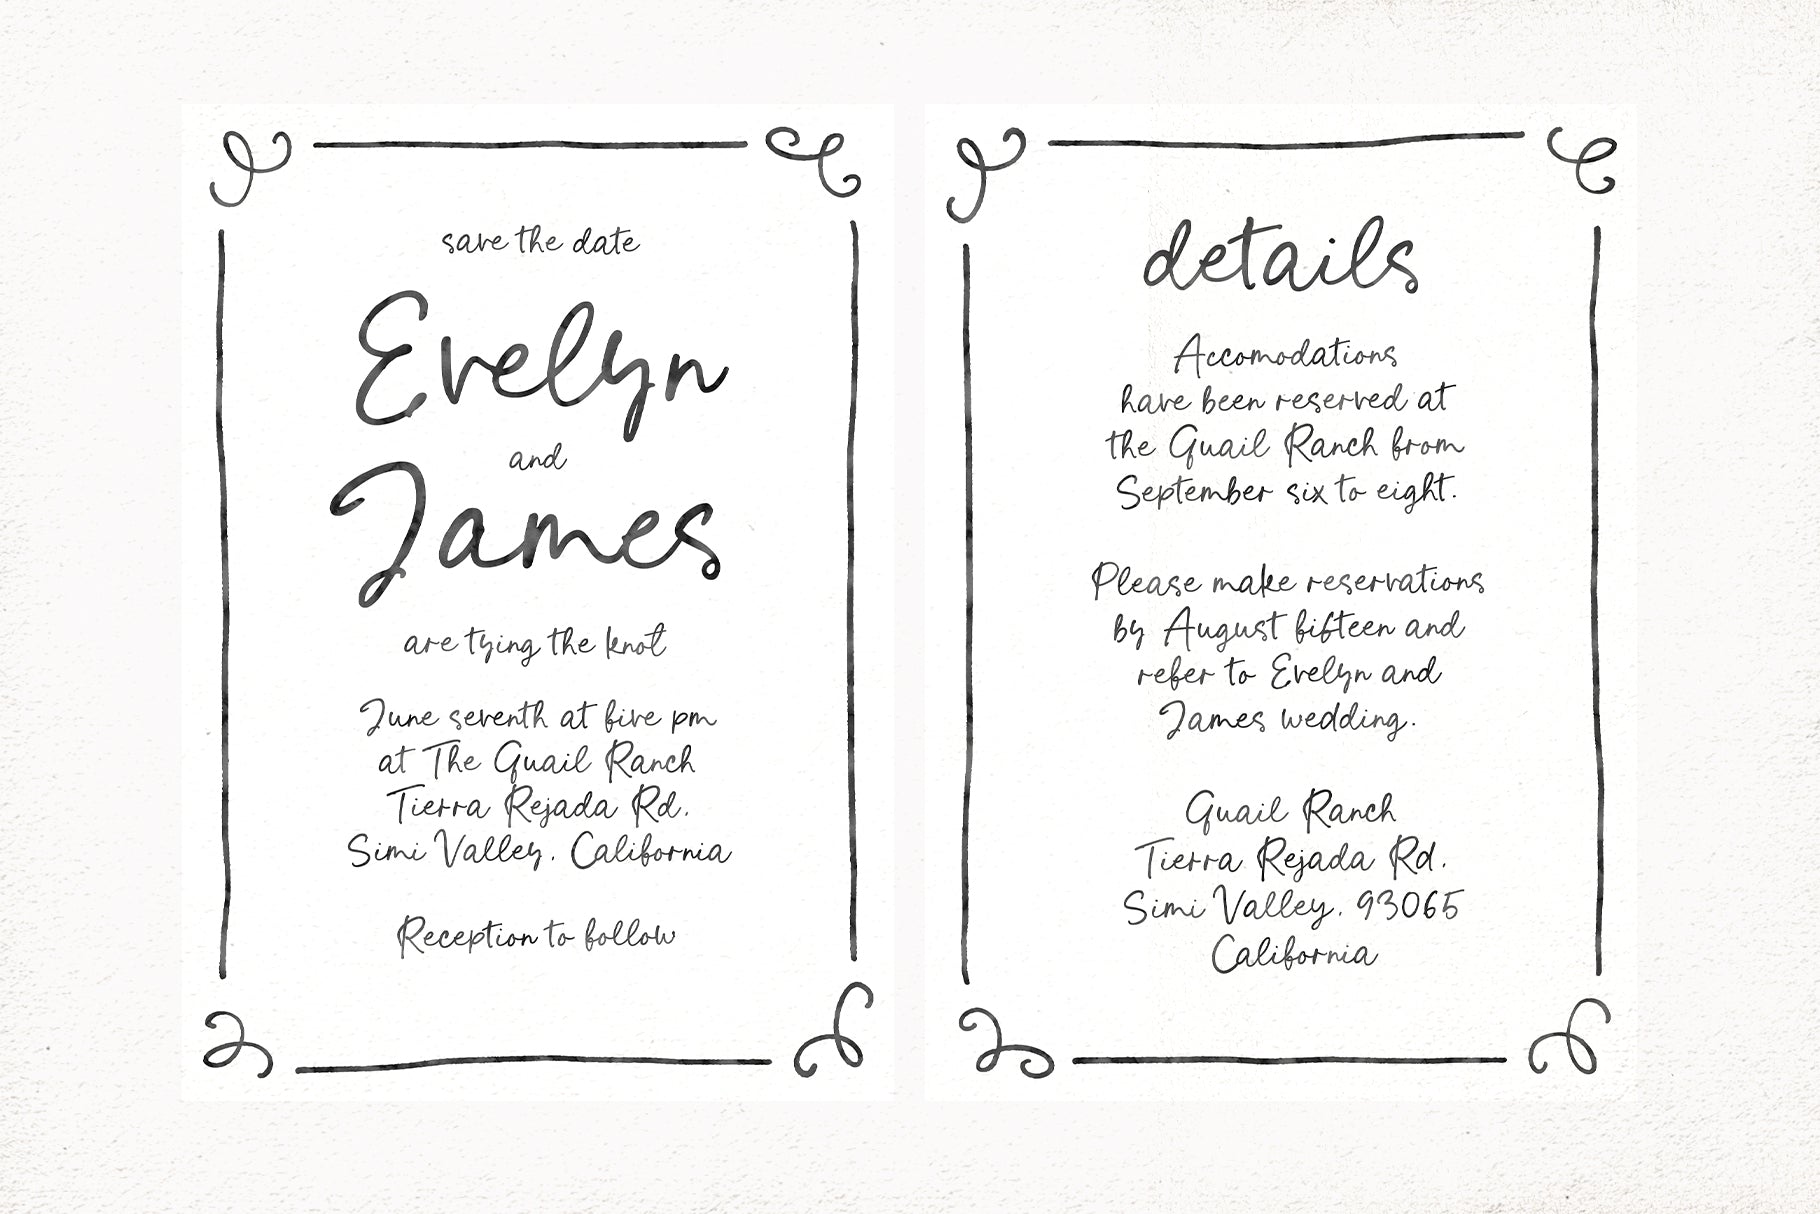 save the date
Evelyn
and
James
are tying the knot
June seventh at five pm
at The Quail Ranch
Tierra Rejada Rd.
Simi Valley. California
Reception to follow
details
Accomodations
have been reserved at
the Quail Ranch from
September six to eight.
Please make reservations
by August fifteen and
refer to Evelyn and
James wedding.
Quail Ranch
Tierra Rejada Rd.
Simi Valley. 93065
California